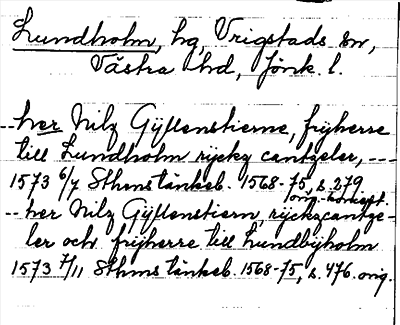 Lundholm, hg, Vrigstads sn,
Västra hd, Jönk. l.
--her Nilz Gÿllenstierne, frijherre
till Lundholm rijckz cantzeler, ----
1573 6/7 Sthms tänkeb. 1568-75, s. 279
orig.-koncept.
--her Nilz Gÿllenstiern, rijckzcantze-
ler och frijherre till Lundbÿholm
1573 7/11 Sthms tänkeb. 1568-75, s. 476. orig.